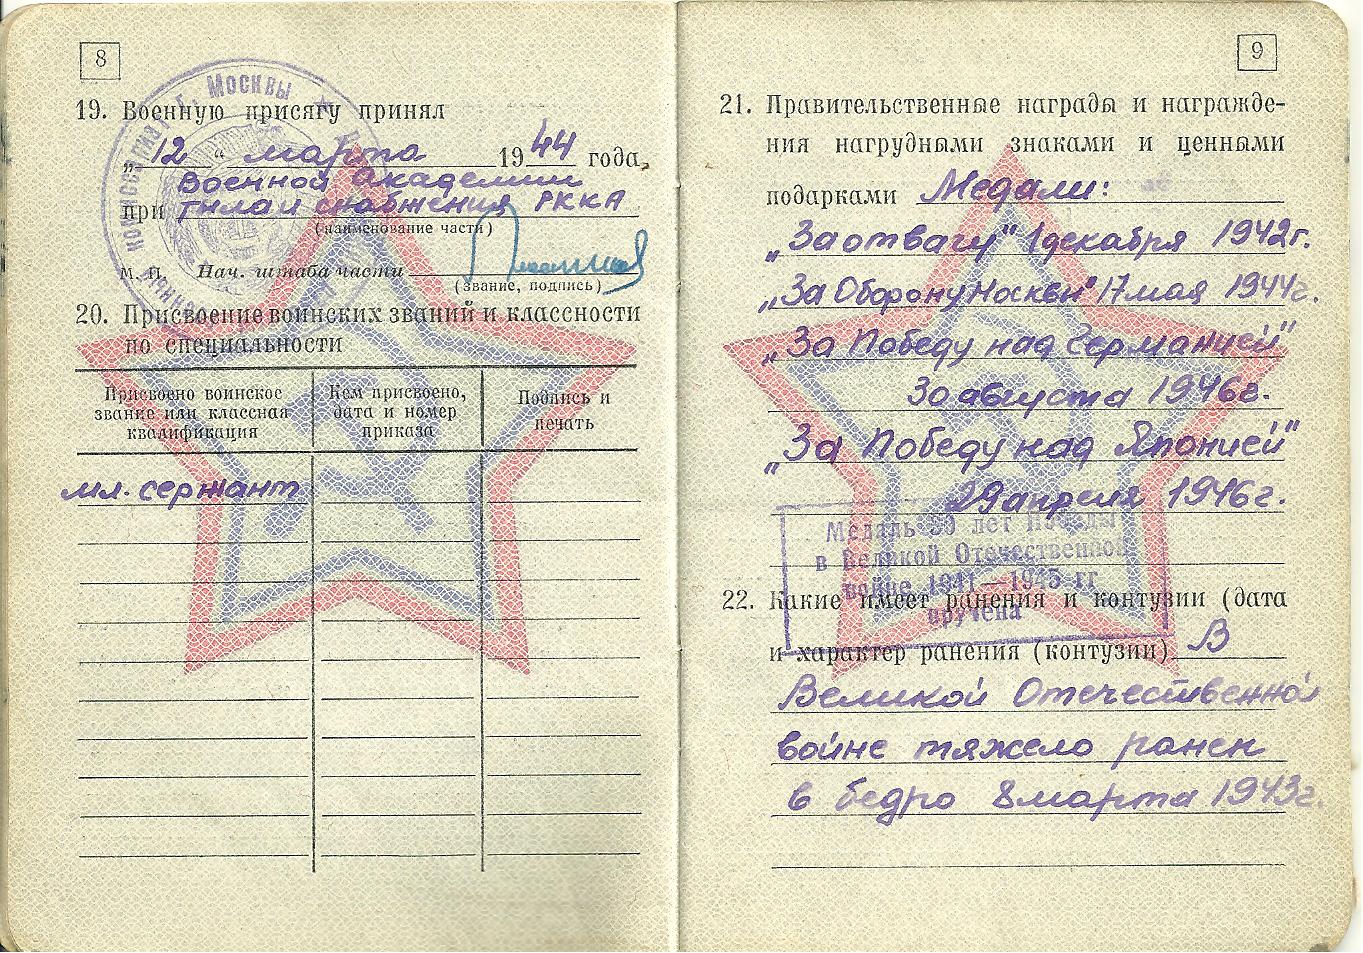 8
19. Военную присягу принял
„12“ марта 1944 года,
Военной Академии
при тыла и снабжения РККА
(наименование части)
М. П. Нач. штаба части
(звание, подпись)
20. Присвоение воинских званий и классности
по специальности
Присвоено воинское звание или классная квалификация
Кем присвоено, дата и номер приказа
Подпись и печать
мл. сержант
г. Москвы
9
21. Правительственные награды и награжде-
ния нагрудными знаками и ценными
подарками Медали:
„За отвагу" 1 декабря 1942г.
„За Оборону Москвы" 17 мая 1944г.
„За Победу над Германией"
30 августа 1946г.
„За Победу над Японией"
29 апреля 1946г.
Медаль 30 лет Победы
в Великой Отечественной
войне 1941—1945 гг
вручена
22. Какие имеет ранения и контузии (дата
и характер ранения (контузии) В
Великой Отечественной
войне тяжело ранен
в бедро 8 марта 1943г.